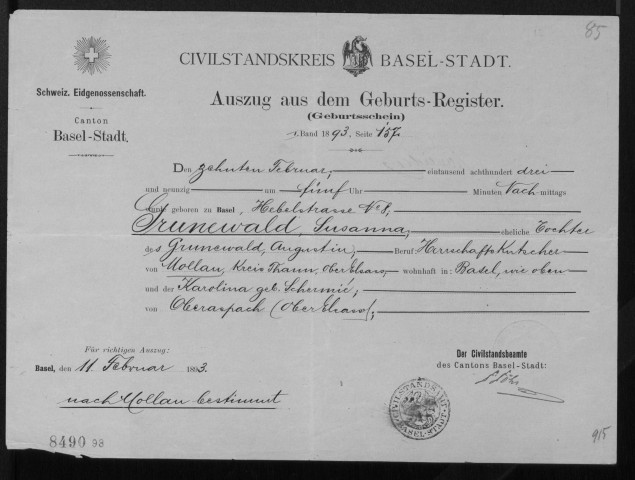 85
CIVILSTANDSKREIS BASEL-STADT.
Schweiz. Eidgenossenschaft.
Canton
Basel-Stadt.
Auszug aus dem Geburts-Register.
(Geburtsschein)
1. Band 1893, Seite 157.
Den zehnten Februar, eintausend achthundert drei
und neunzig um fünf Uhr Minuten Nach-mittags
wurde geboren zu Basel, Hebelstrasse No 8,
Grunewald, Susanna, eheliche Tochter
des Grunewald, Augustin, Beruf: Herrschaftskutscher
von Mollau, Kreis Thann, Ober Elsass, wohnhaft in: Basel, wie oben
und der Karolina geb. Schermié,
von Oberaspach (Ober Elsass),
Für richtigen Auszug:
Basel, den 11. Februar 1893.
nach Mollau bestimmt
Der Civilstandsbeamte
des Cantons Basel-Stadt:
CIVILSTANDSAMT
BASEL-STADT
8490 98
915